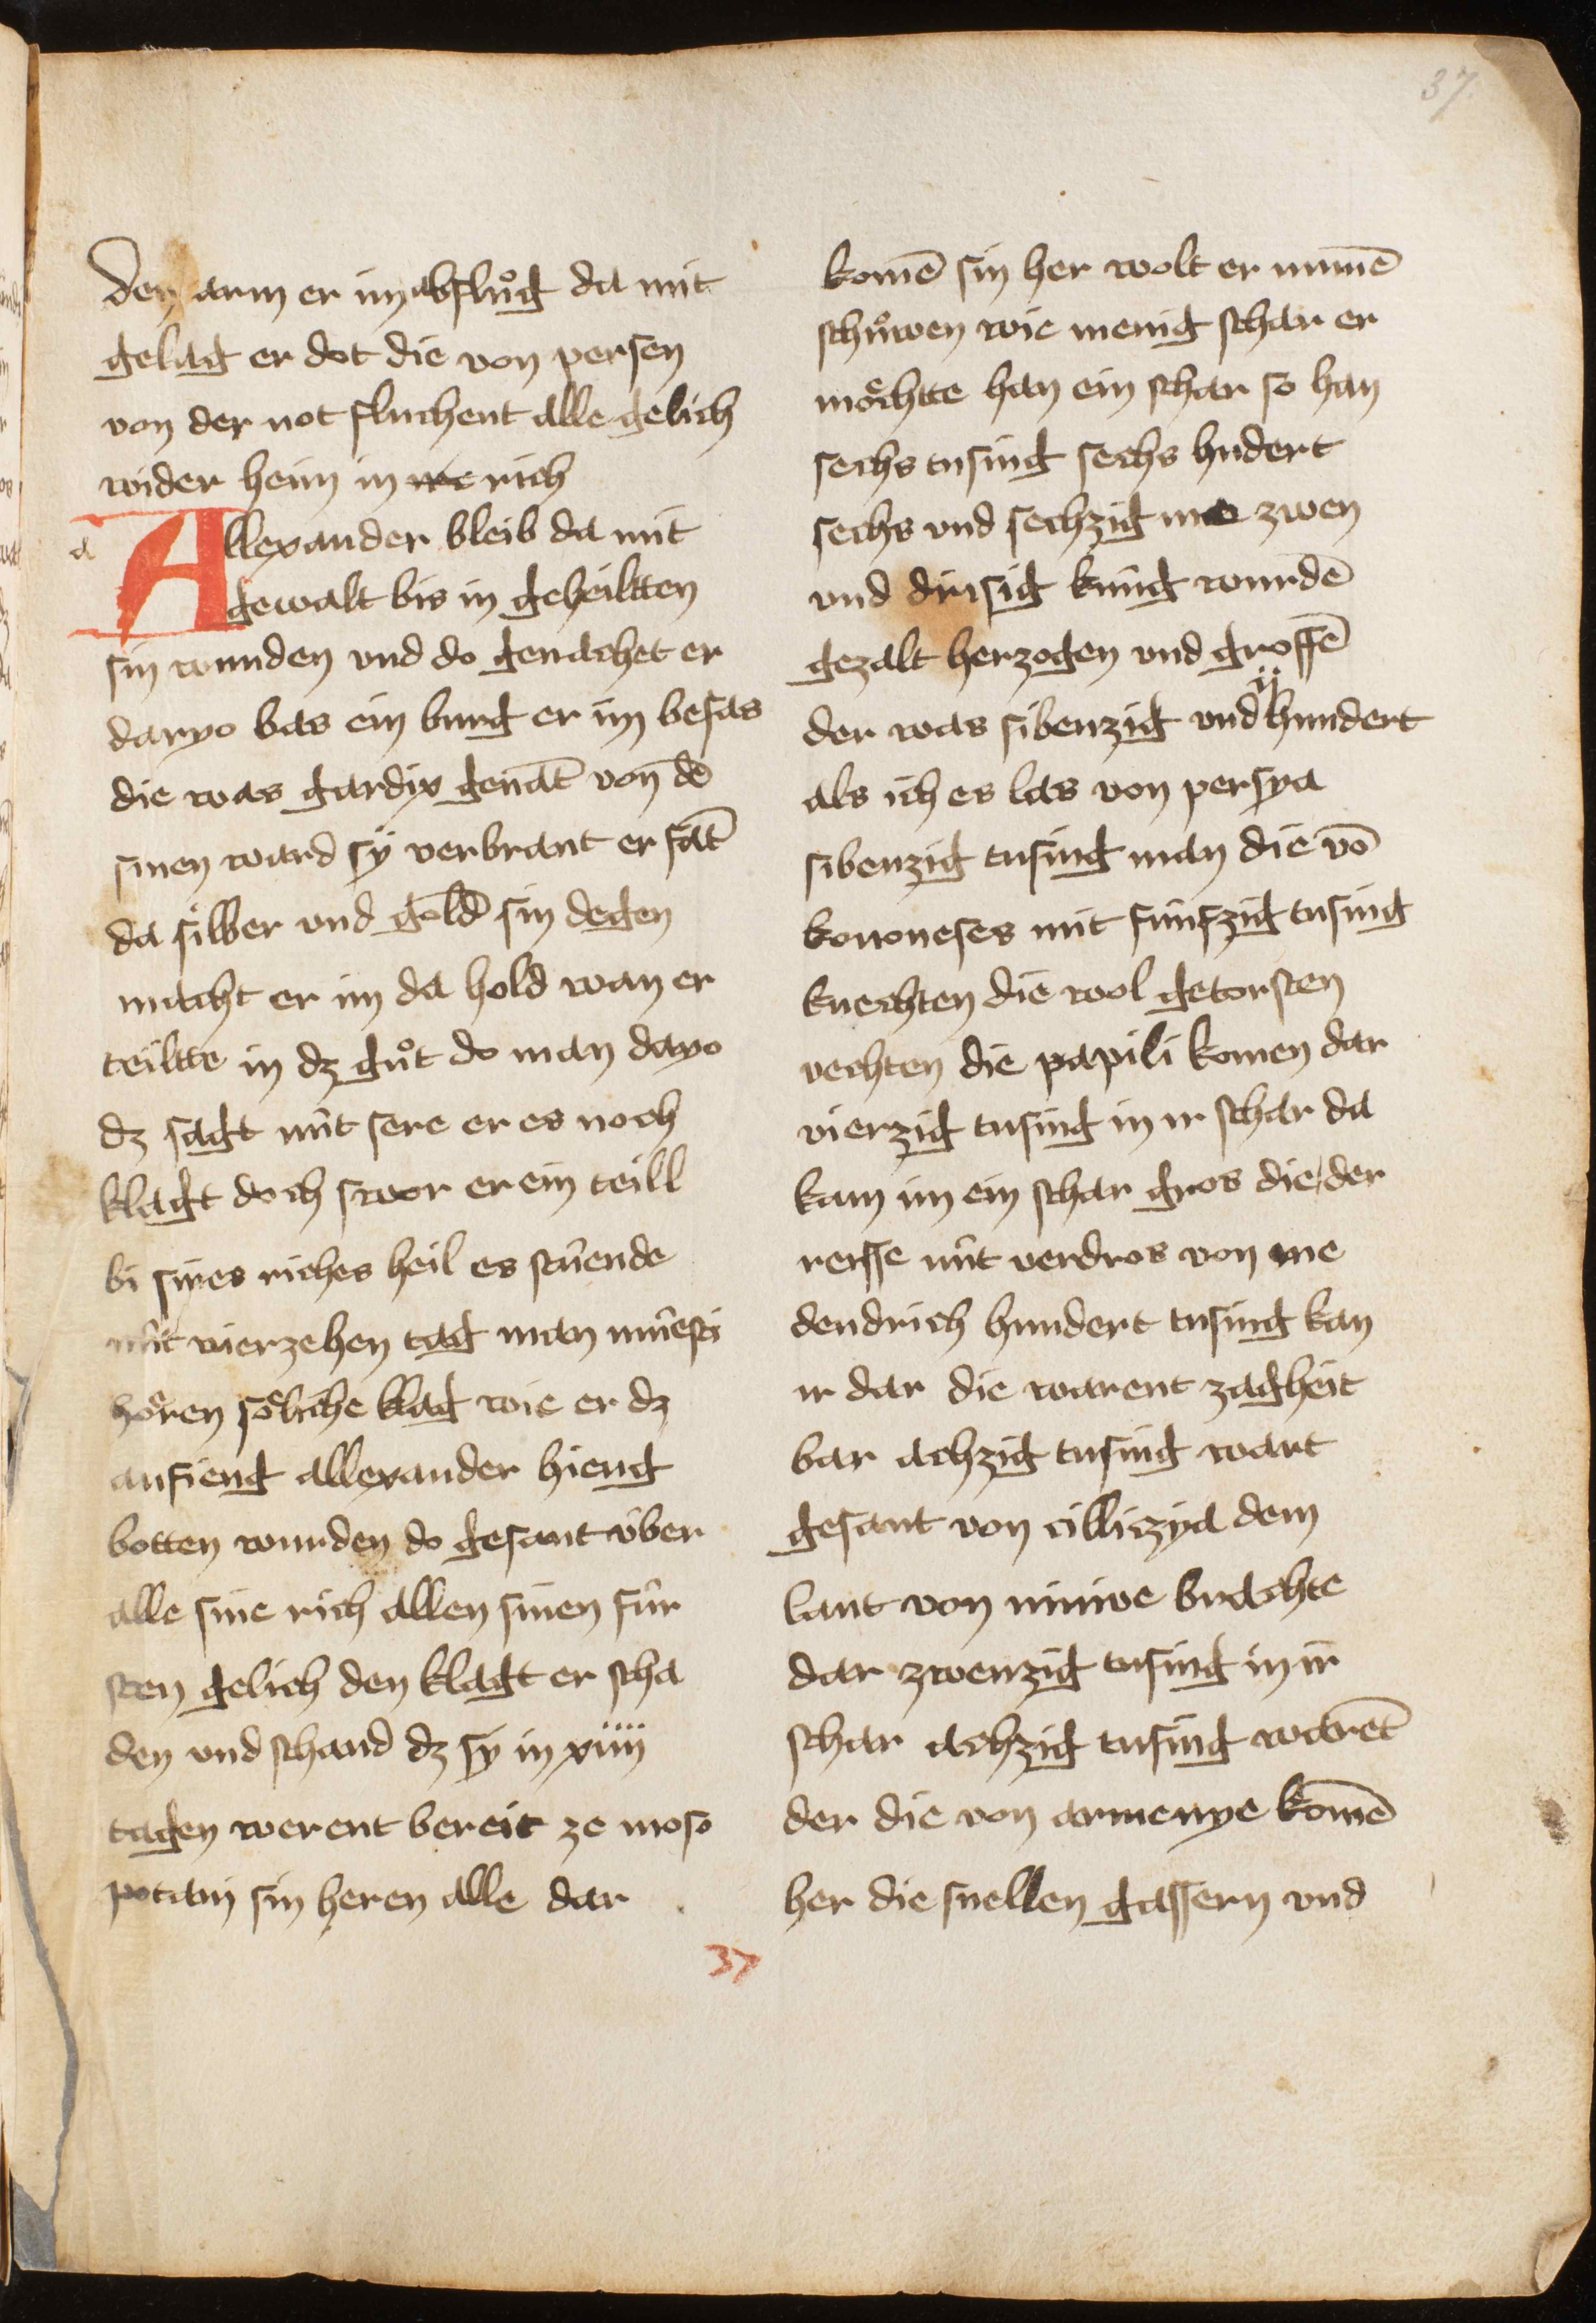 37.
den arm er im absluͦg da mit
gelag er dot die von persen
von der not fluchent alle gelich
wider heim in rich
a
Allexander bleib da mit
gewalt bis in geheiltten
sin wunden vnd do genachet er
daryo bas ein burg er im besas
die was gardix genāt von dē
sinen ward sÿ verbrant er fāt
da silber vnd gold sin degen
macht er im da hold wan er
teiltte in dz guͦt do man dayo
dz sagt nút sere er es noch
klagt doch swor er ein teill
bi sines riches heil es stúende
nút vierzehen tag man múesti
hoͤren soͤliche klag wie er dz
anfieng allexander hieng
botten wurden do gesant v́ber
alle sine rich allen sinen fúr
sten gelich den klagt er scha
den vnd schand dz sÿ in xiiii
tagen werent bereit ze moso
potani sin heren alle dar
komē sin her wolt er numē
schuͦwen wie menig schar er
moͤchtte han ein schar so han
sechs tusing sechs hudert
sechs vnd sechzig me zwen
vnd drisig kúng wurdē
gezalt herzogen vnd grossē
der was sibenzig vnd ii hundert
als ich es las von persya
sibenzig tusing man die vō
kononeses mit fúnfzig tusing
knechten die wol getorsten
vechten die papili komen dar
vierzig tusing in ir schar da
kam im ein schar gros die der
reisse nút verdros von me
dendrich hundert tusing kan
ir dar die warent zagheit
bar achzig tusing wart
gesant von cilliczya dem
lant von ninive brachte
dar zwenzig tusing in ir
schar achzig tusing warēt
der die von armenye komē
her die snellen gassern vnd
37